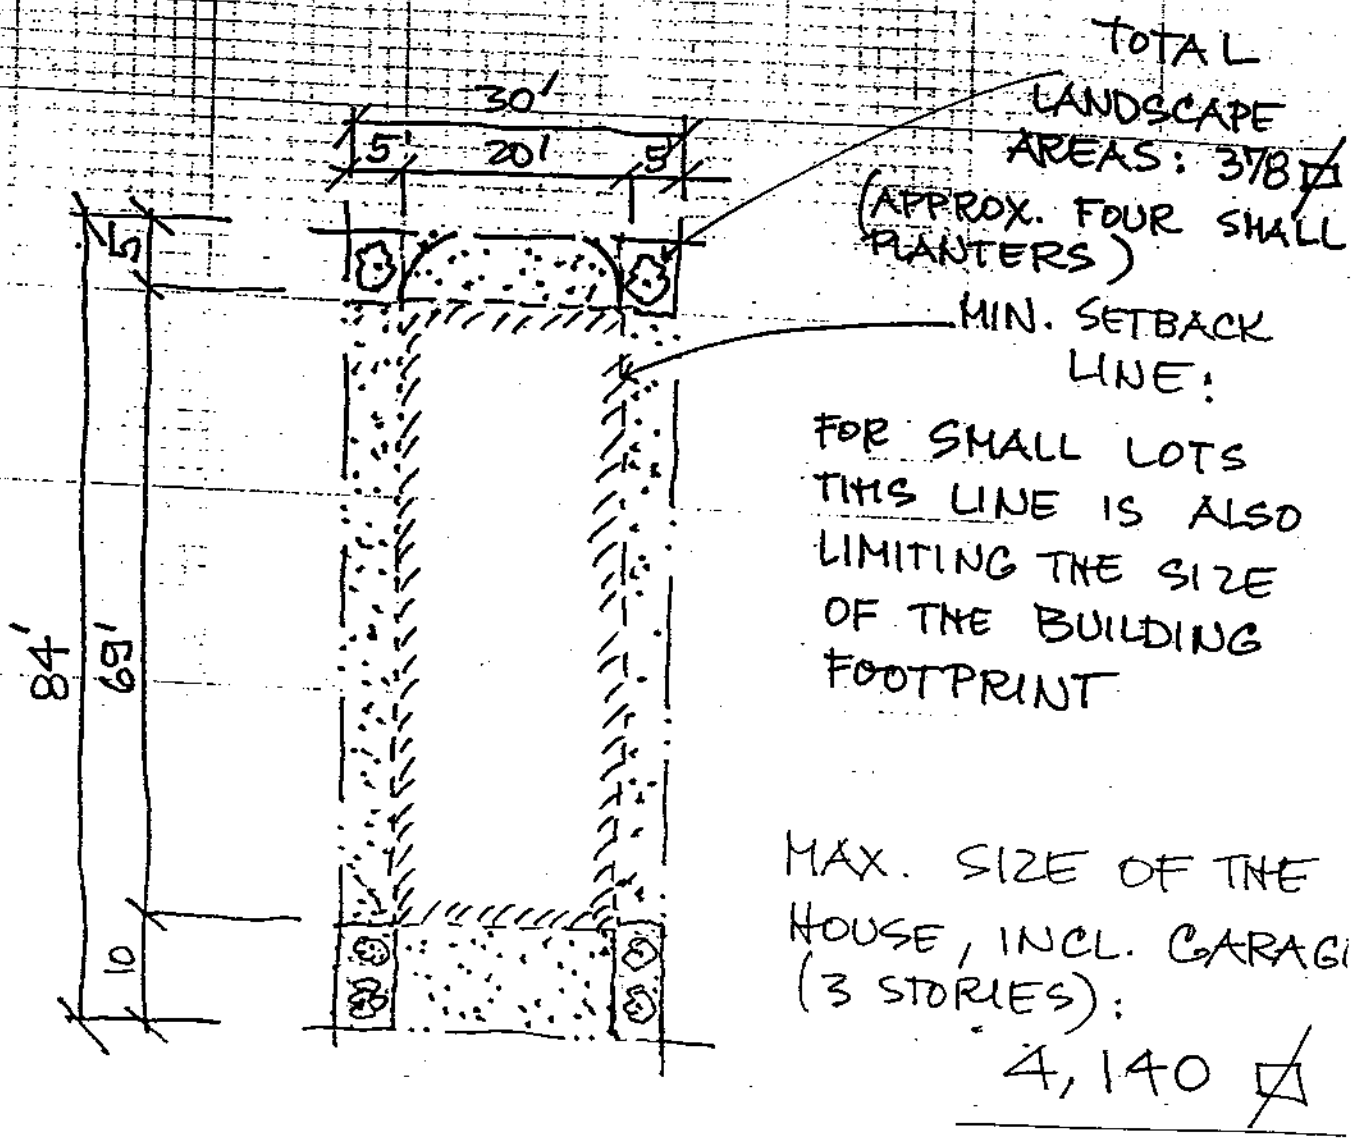 TOTAL
LANDSCAPE
AREAS: 378
(APPROX. FOUR SMALL
PLANTERS)
MIN. SETBACK
LINE:
FOR SMALL LOTS
THIS LINE IS ALSO
LIMITING THE SIZE
OF THE BUILDING
FOOTPRINT
MAX. SIZE OF THE
HOUSE, INCL. GARAG
(3 STORIES):
4,140
30'
5' 20' 5'
5
84'
69'
10